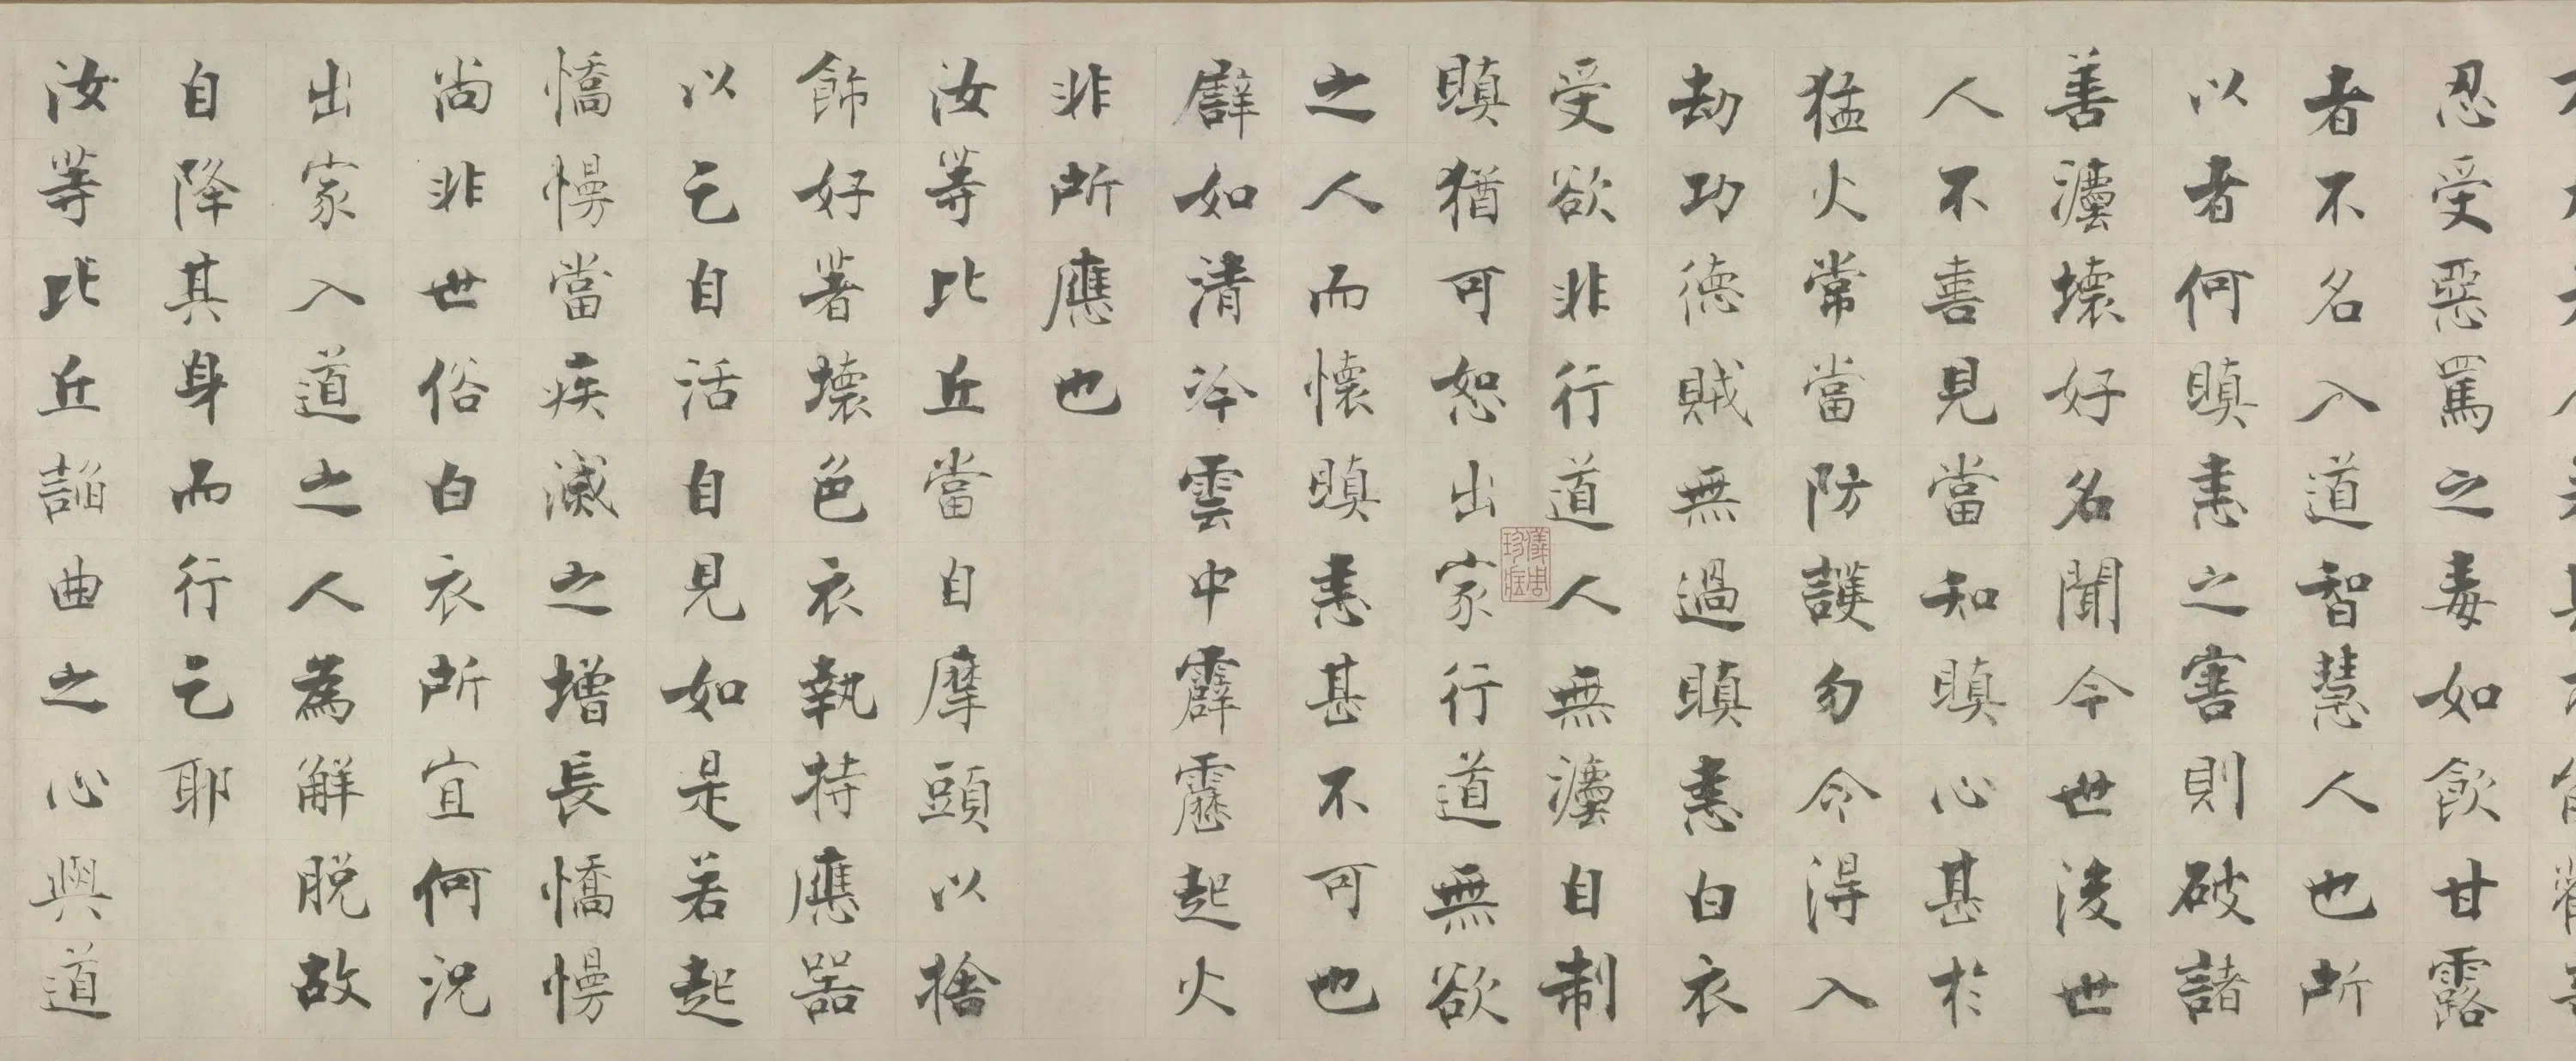 忍受惡罵之毒如飲甘露
者不名入道智慧人也所
以者何瞋恚之害則破諸
善灋壞好名聞今世後世
人不憙見當知瞋心甚於
猛火常當防護勿令得入
劫功德賊無過瞋恚白衣
受欲非行道人無灋自制
瞋猶可恕出家行道無欲
之人而懷瞋恚甚不可也
譬如清泠雲中霹靂起火
非所應也
汝等比丘當自摩頭以捨
飾好著壞色衣執持應器
以乞自活自見如是若起
憍慢當疾滅之增長憍慢
尚非世俗白衣所宜何況
出家入道之人為解脫故
自降其身而行乞耶
汝等比丘諂曲之心與道